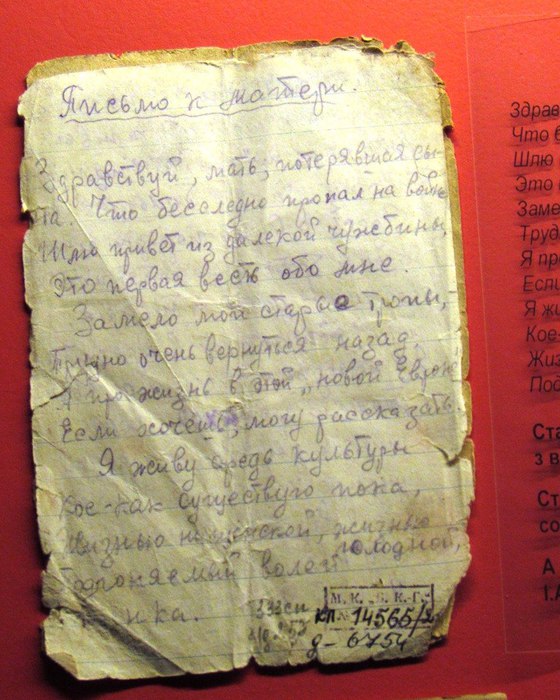 Письмо к матери.
Здравствуй, мать, потерявшая сы-
на. Что бесследно пропал на войне
Шлю привет из далекой чужбины,
Это первая весть обо мне.
Замело мои старые тропы,-
Трудно очень вернуться назад.
Я про жизнь в этой „новой Европе"
Если хочешь, могу рассказать.
Я живу средь культуры
Кое-как существую пока,
Жизнью нищенской, жизнью
голодной,
волей
нка.
М. К. Б. К-Г.
КП№ 14565/2
д-6754
Здрав
Что б
Шлю
Это
Заме
Труд
Я пр
Если
Я жи
Кое-
Жиз
Под
Ста
з в
Ст
со
А
І.А